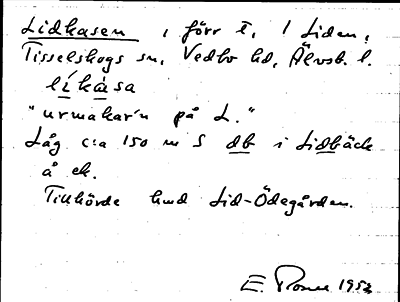 Lidkasen, förr t. 1 Liden,
Tisselskogs sn, Vedbo hd, Älvsb. l.
líkàsa
"urmakar'n på L."
Låg c:a 150 m S db i Lidbäck
å ek.
Tillhörde hmd Lid-Ödegården.
E 1953